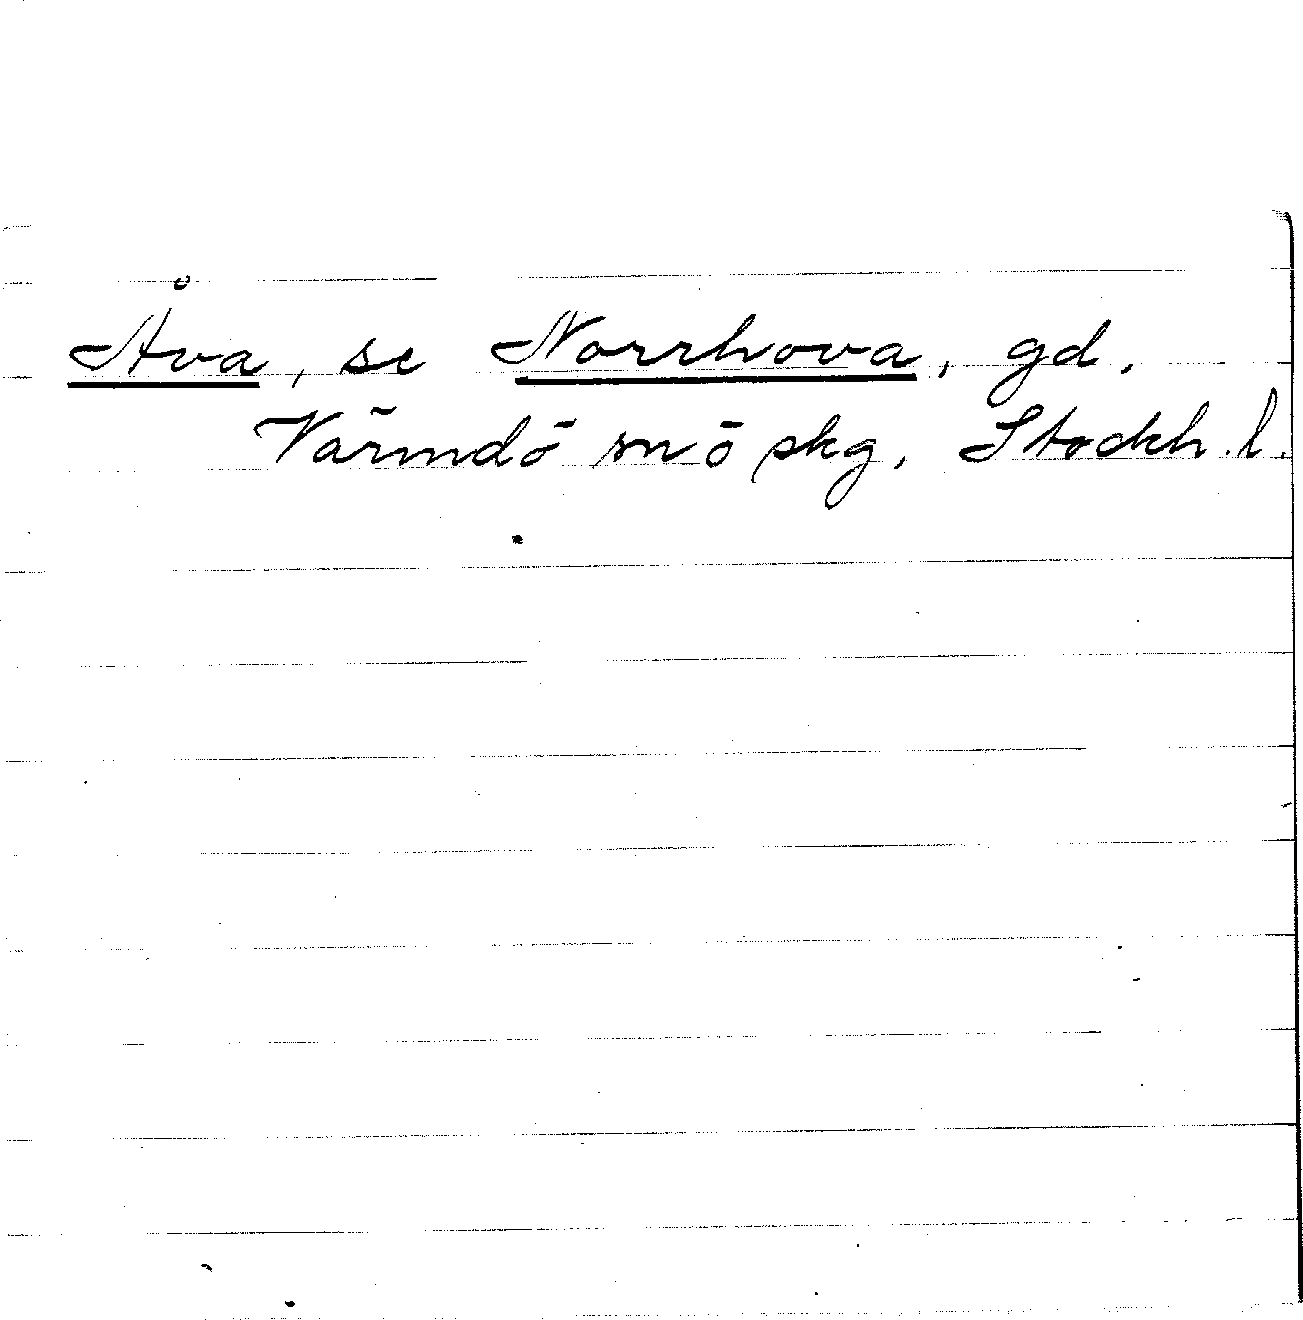 Åva, se Norrhova, gd,
Värmdö sn o skg, Stockh. l.